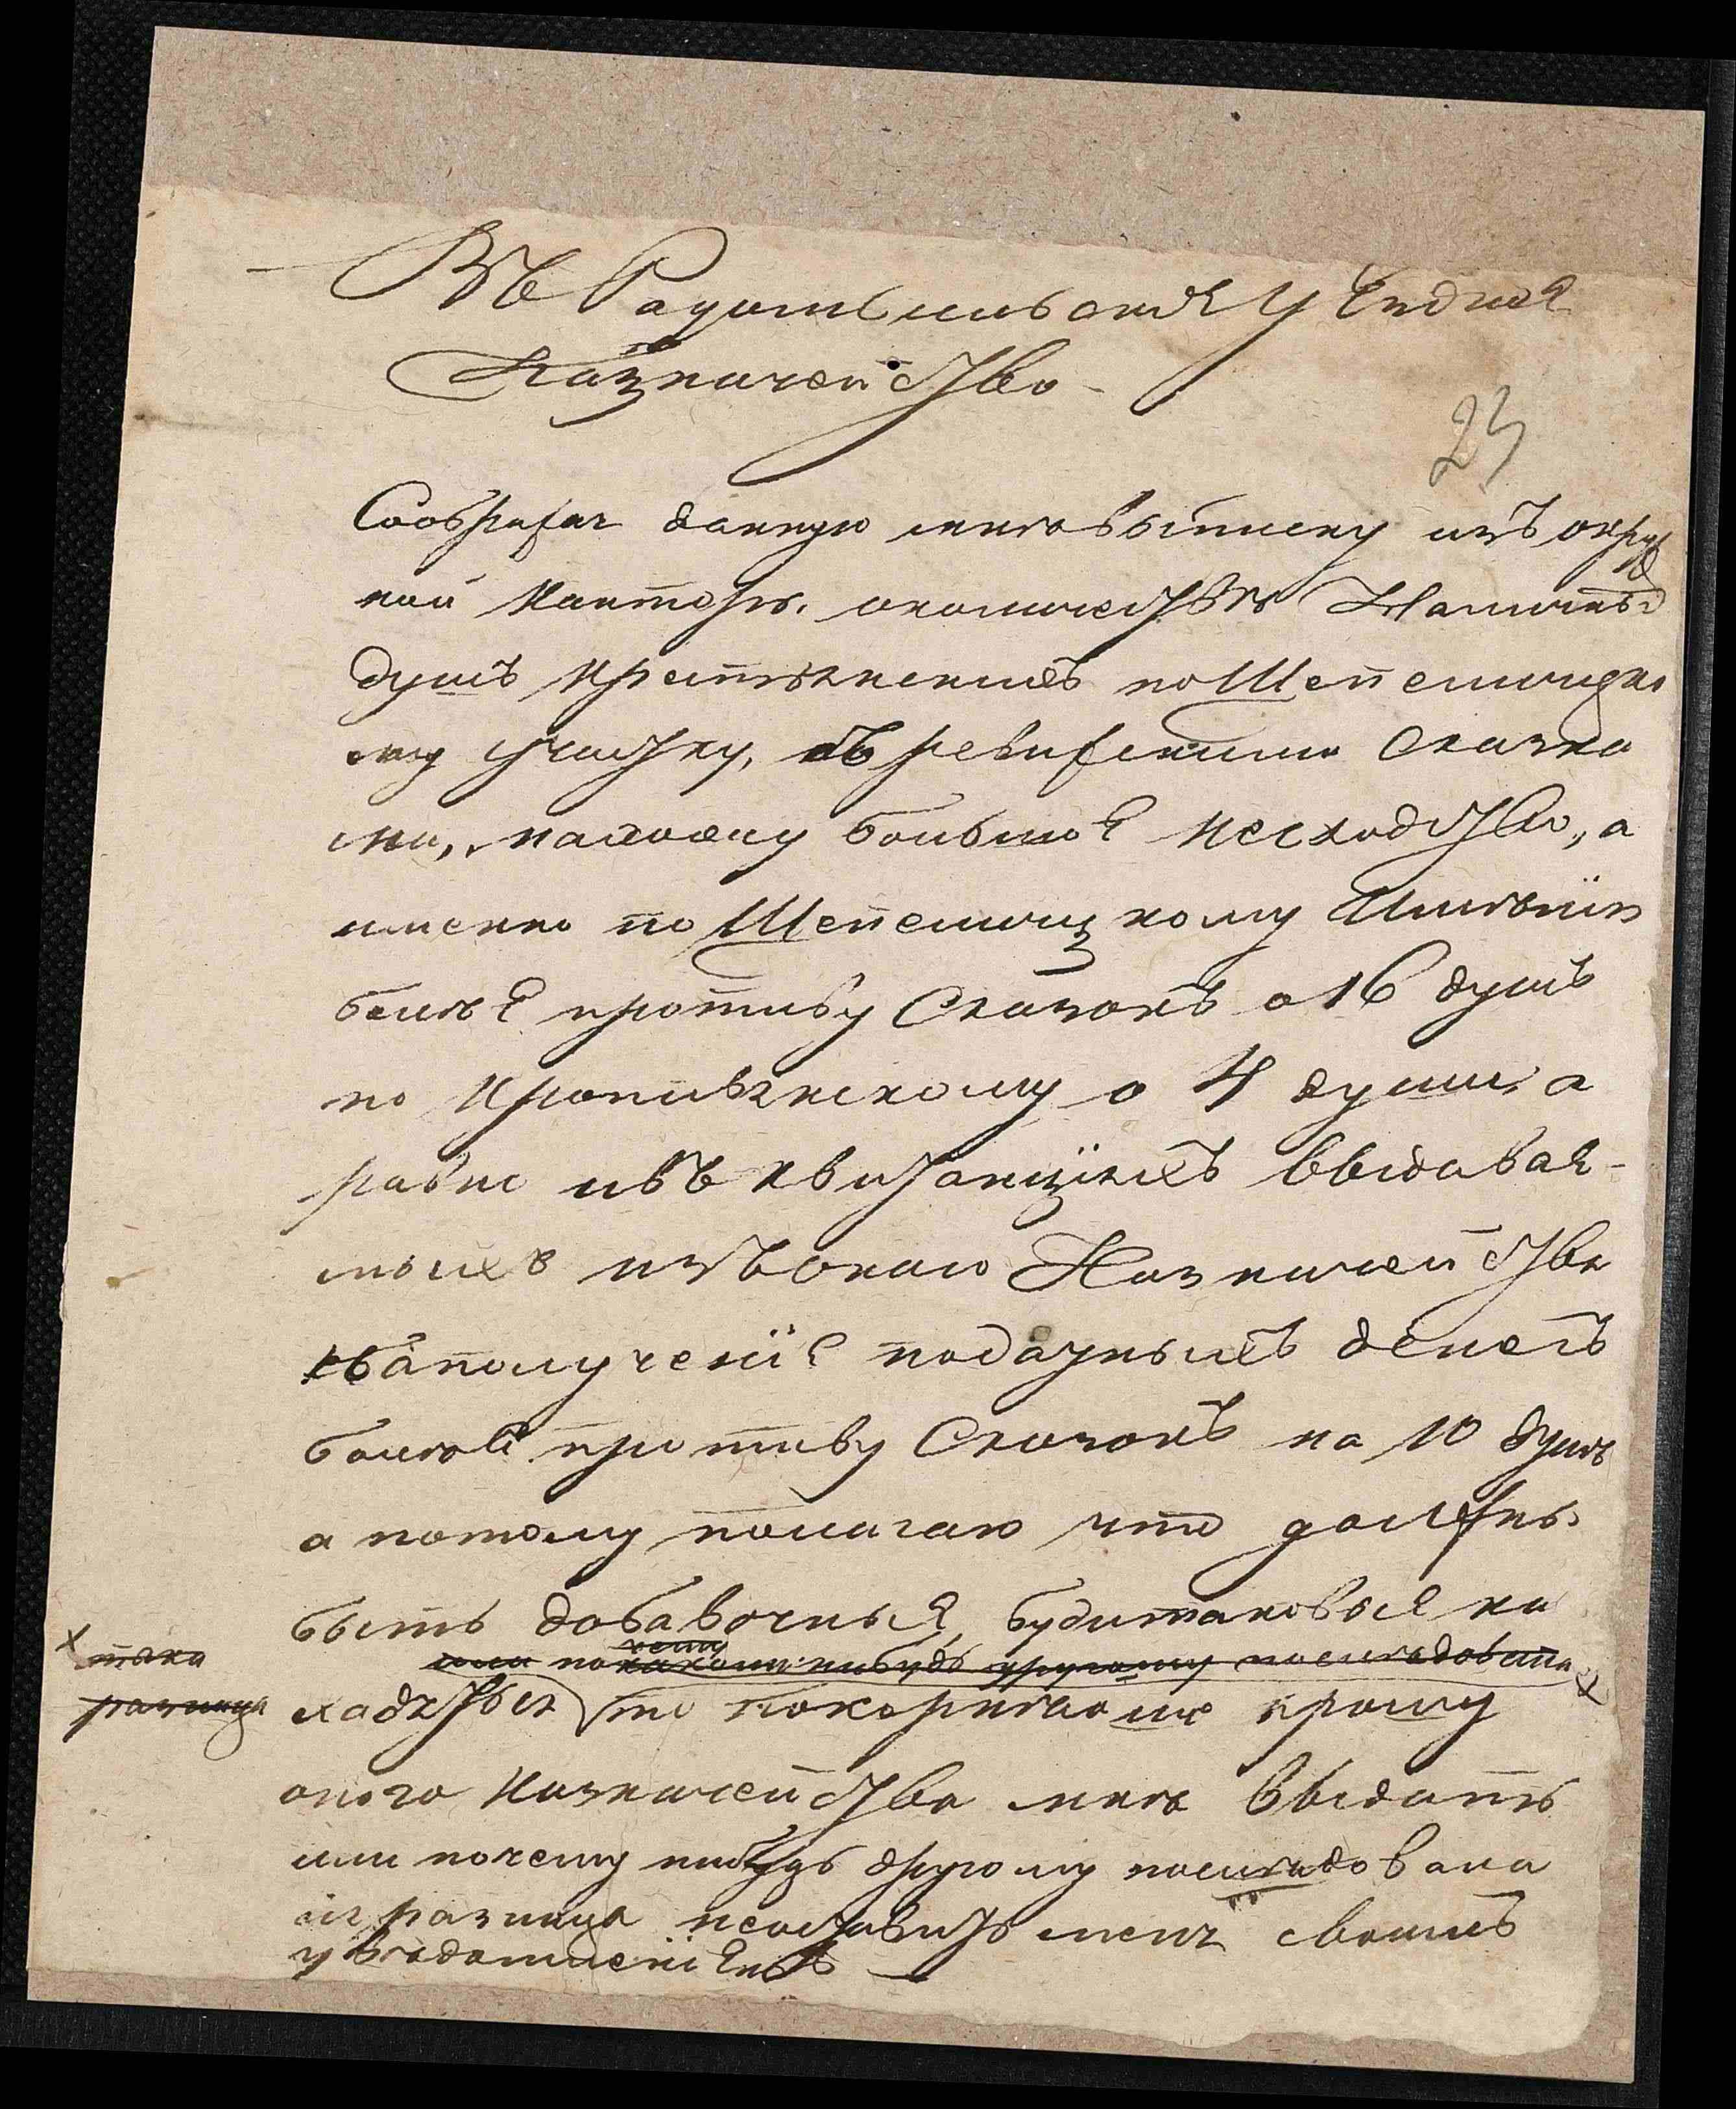 Въ Радомысльское Уездное
Казначейство
23
Соображая данную мнѣ выписку изъ окруж
ной Конторы, о количествѣ Наличныхъ
душъ крестьянскихъ по Шепелицко
му участку, съ ревизскими Сказка
ми, нахожу большое несходство, а
именно по Шепелицкому Имѣнію
болѣе противу Сказокъ о 16 душъ
по Кропивянскому о 4 души, а
равно и въ квитанціяхъ выдавае-
мыхъ изъ онаго Казначейства
въ полученіе податныхъ денегъ
болѣе противу Сказокъ на 10 душъ
а потому полагаю что должны
быть добавочные, буди таковые на
чему
или по какому нибудь другому последовала
х така
разница
ходятся то покорнейше прошу
оного Казначейства мнѣ выдать
или почему нибудь другому последовала
разница неоставить меня своимъ
уведомленіемъ